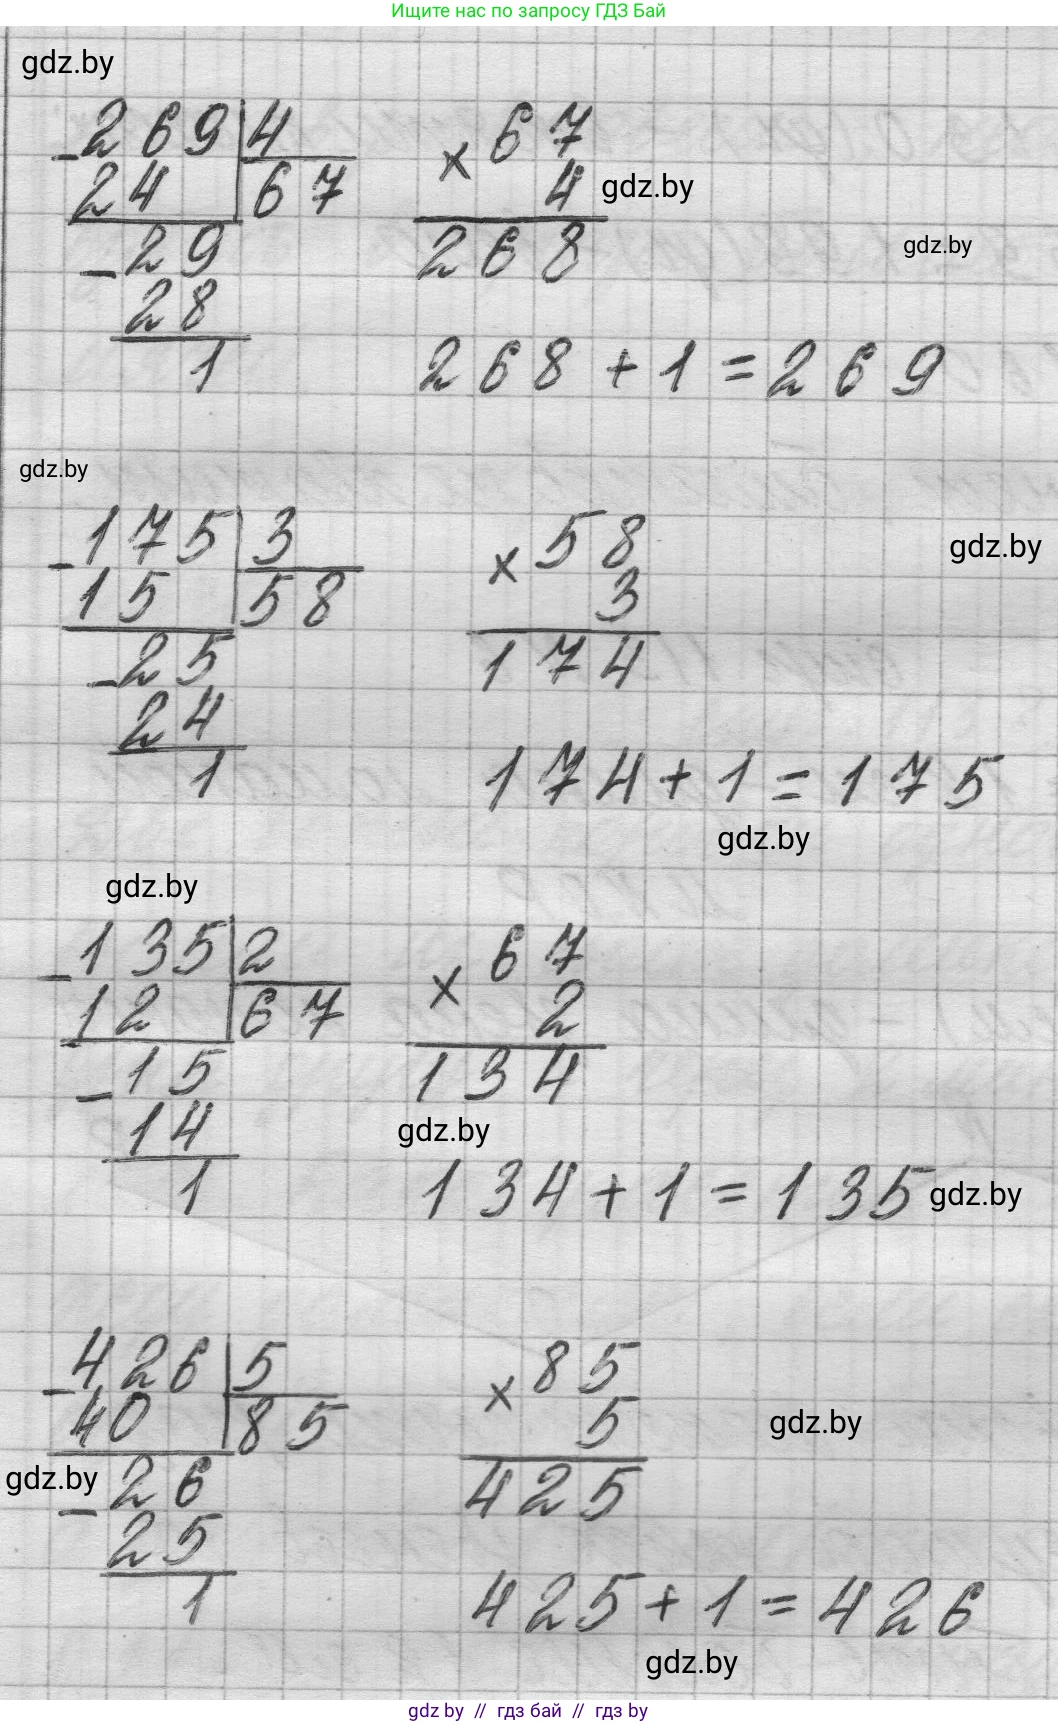 Ищите нас по запросу ГДЗ Бай
gdz.by
- 269 | 4
24 67
- 29
28
1
× 67
4
268
gdz.by
gdz.by
268 + 1 = 269
gdz.by
- 175 | 3
15 58
- 25
24
1
× 58
3
174
gdz.by
174 + 1 = 175
gdz.by
gdz.by
- 135 | 2
12 67
- 15
14
1
× 67
2
134
gdz.by
134 + 1 = 135
gdz.by
- 426 | 5
40 85
- 26
25
1
gdz.by
× 85
5
425
gdz.by
425 + 1 = 426
gdz.by
gdz by // гдз бай // гдз by